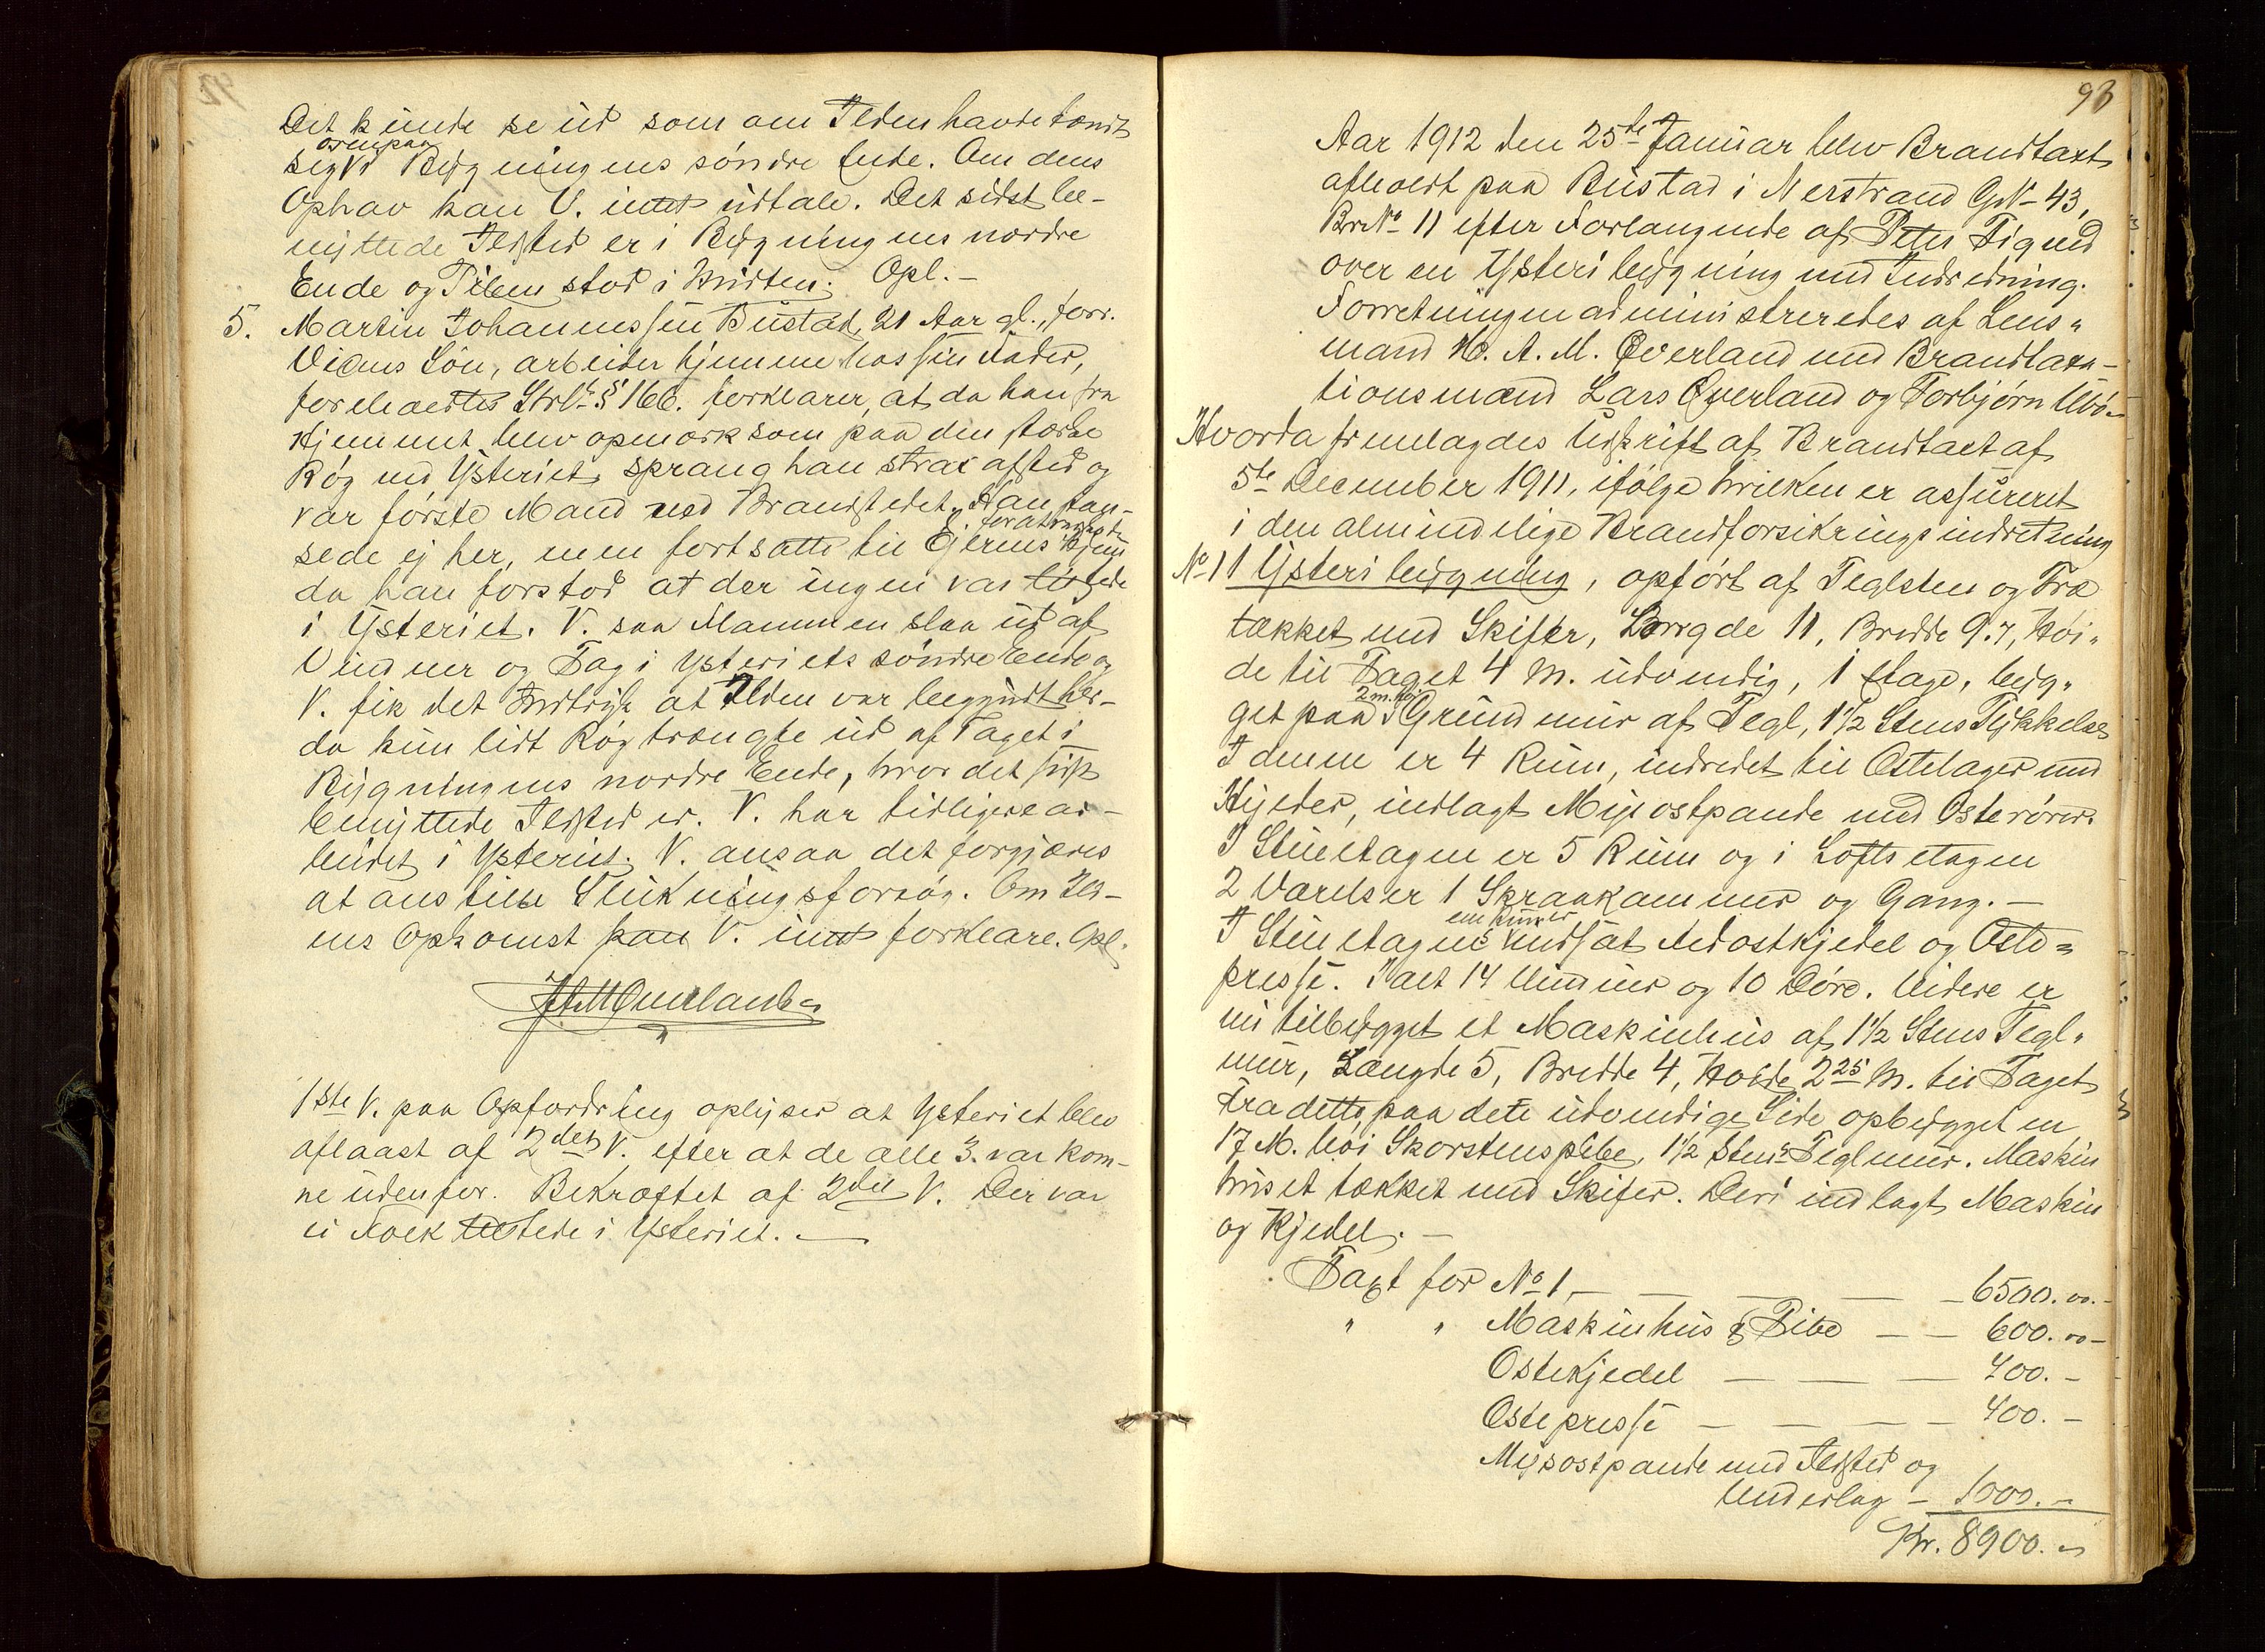 Det kunde se ud som om Ilden havde tændt
sig ovenpaa i Bygningens søndre Ende. Om dens
Ophav kan V. intet udtale. Det sidst be-
nyttede Ildsted er i Bygningens nordre
Ende og Piben stod i Midten. Opl.-
5. Martin Johannessen Bustad, 21 Aar gl., forr.
Vidnes Søn, arbeider hjemme hos sin Fader,
foreholdtes Strl. § 166. forklarer, at da han fra
Hjemmet blev opmærksom paa den stærke
Røg ved Ysteriet, sprang han strax afsted og
var første Mand ved Brandstedet. Han stan-
sede ej her, men fortsatte til Ejerens Hjem for at
da han forstod at der ingen var tilstede
i Ysteriet. V. saa Flammen slaa ud af
Vinduer og Tag i Ysteriets søndre Ende og
V. fik det Indtryk at Ilden var begyndt her-
da kun lidt Røg trængte ud af Taget i
Bygningens nordre Ende, hvor det sidst
benyttede Ildsted er. V. har tidligere ar-
beidet i Ysteriet. V. ansaa det forgjæves
at anstille Slukningsforsøg. Om Ild-
ens Opkomst kan V. intet forklare. Opl.
H A M Øverland
1ste V. paa Opfordring oplyser at Ysteriet blev
aflaast af 2det V. efter at de alle 3. var kom-
ne udenfor. Bekræftet af 2det V. Der var
ei Folk tilstede i Ysteriet. —
93
Aar 1912 den 25de Januar blev Brandtaxt
afholdt paa Bustad i Nerstrand GN- 43,
BrNo 11 efter Forlangende af Peter Tigned
over en Ysteribygning med Indredning.
Forretningen administreredes af Lens-
mand H. A. M. Øverland med Brandtaxa-
tionsmænd Lars Øverland og Torbjørn Ubø-
Hvorda fremlagdes Udskrift af Brandtaxt af
5te December 1911, ifølge hvilken er assureret
i den almindelige Brandforsikringsindretning
No 1 1 Ysteribygning, opført af Teglsten og Træ
tækket med Skifer, Længde 11, Bredde 9.7, Høi-
de til Taget 4 M. udvendig, 1 Etage, byg-
get paa 2 m. høj Grundmur af Tegl, 1½ Stens Tykkelse
I denne er 4 Rum, indredet til Ostelager med
Hyler, indlagt Mysostpande med Osterører.
I Stueetagen er 5 Rum og i Loftsetagen
2 Værelser 1 Skraakammer og Gang. —
I Stueetagens ene Rum er indsat Ostkjedel og Oste-
presse. I alt 14 Vinduer og 10 Døre. Videre er
nu tilbygget et Maskinhus af 1½ Stens Tegl-
mur, Længde 5, Bredde 4, Høide 2 25 M. til Taget
Fra dette, paa dets udvendige Side opbygget en
17 M. høi Skorstenspibe, 1½ Stens Teglmur. Maskin
huset tækket med Skifer. Deri indlagt Maskin
og Kjedel. —
Taxt for No 1, — — — — 6500.00.-
" " Maskinhus & Pibe — — 600.00-
Ostekjedel — — — 400.-
Ostepresse — — — — 400.-
Mysostpande med Ildsted og
Underlag — 1000.-
Kr. 8900.-